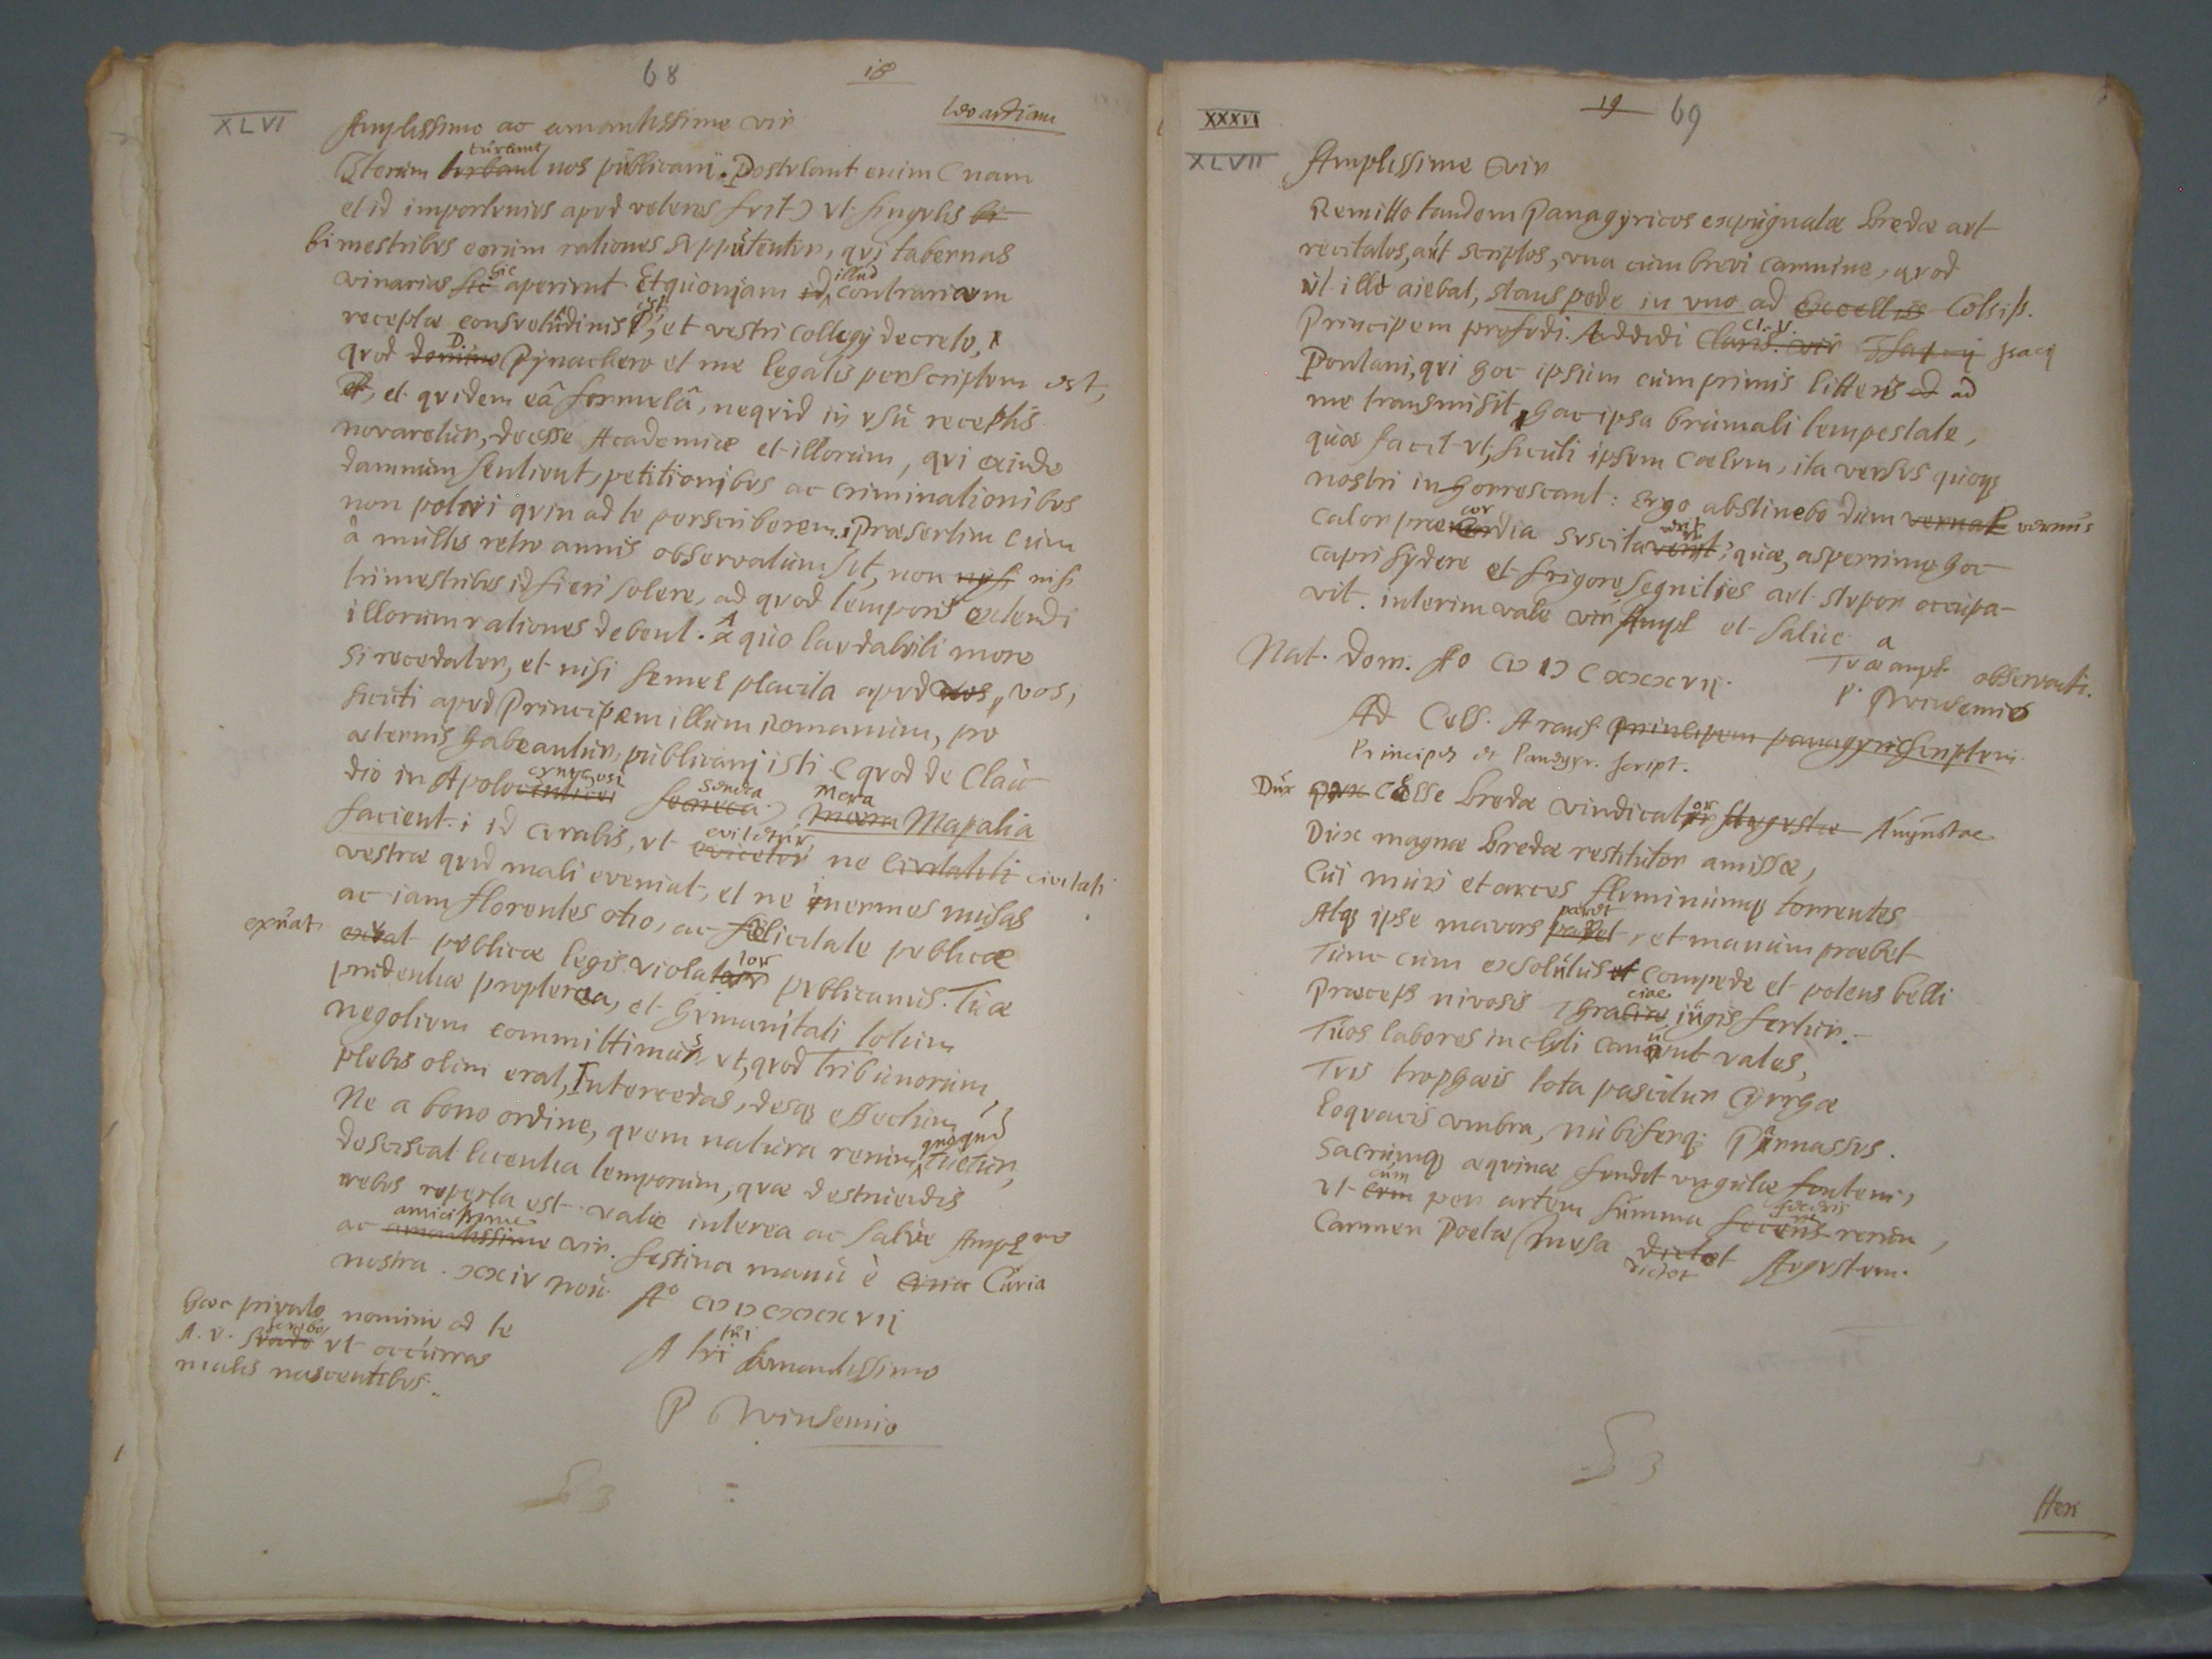 68
18
XLVI
Amplissime ac amantissime vir
Leoardiam
Iterum turbant turbant nos publicani. Postulant enim (nam
et id importunius apud veteres fuit) ut singulis bi
bimestribus eorum rationes supputentur, qui tabernas
vinarias sic hic aperirnt. Et quoniam id, illud contrarium
receptæ consvetudinis est, et vestri Collegij decreto,
quod domino D. Pynackero et me legatis perscriptum est,
et, et quidem eâ formulâ, nequid in usu receptis
novaretur, deesse Academiæ et illorum, qui exinde
damnum sentiunt, petitionibus ac criminationibus
non potui quin ad te perscriberem. Præsertim cum
â multis retro annis observatum sit, non nisi nisi
trimestribus id fieri solere, ad quod temporis extendi
illorum rationes debent. A quo laudabili more
si recedatur, et nisi semel placita apud vos, vos,
sicuti apud Principem illum Romanum, pro
æternis habeantur, publicani isti (quod de Clau
dio in Apolocyntosi Seneca Seneca) Mera Mera Mapalia
facient. id curabis, ut evitetur ne Civitati civitati
vestræ quid mali eveniat, et ne inermes musas
ac iam florentes otio, ac felicitate publicæ
exuat
exuat publicæ legis violator publicanus. Tuæ
prudentiæ propterea, et humanitati totum
negotium committimus, ut, quod Tribunorum
plebis olim erat, Intercedas, desque effectum,
Ne a bono ordine, quem natura rerum quoque tuetur,
desciscat licentia temporum, quæ destruendis
rebus reperta est. vale interea ac salve Ampl me
ac amantissime amicissime vir. festina manu è Curia Curia
nostra. XXIV nov. Ao CIƆ IƆ CXXXVII
Hæc privato nomine ad te
A. V. scribo ut occurras
malis nascentibus.
A tui tui Amantissimo
P Winsemio
19
69
XXXVI
XLVII
Amplissime Vir
Remitto tandem Panagyricos expugnatæ Bredæ aut
recitatos, aut scriptos, una cum brevi carmine, quod
ut ille aiebat, stans pede in uno ad Excelliss Celsiss.
Principem profudi. Addidi Claris. vir Cl. V. Isacij Isacij
Pontani, qui hoc ipsum cum primis litteris ad ad
me transmisit, hac ipsa brumali tempestate,
quæ facit ut, sicuti ipsum Cælum, ita versus quoque
nostri inhorrescant: Ergo abstinebo dum vernus
calor præcordia suscitaverit, quæ, asperrimo hoc
capri sydere et frigore, segnities aut stupor occupa-
vit. interim vale vir Ampl et salve a
Tuæ ampl. observanti.
P. Winsemio
Nat. Dom. Ao CIƆ IƆ CXXXVII.
Ad Cels. Araus Principem panagyri scriptum
Principes et Panegyr. script.
Dux
Dux Celse Bredæ vindicator Augustæ Augustae
Dux magnæ Bredæ restitutor amissæ,
Cui muri et arces fluminumque torrentes
Atque ipse mavors paret paret, et manum præbet
Tunc cum exsolutus et compede et potens belli
Præceps nivosis Thraciae iugis fertur.
Tuos labores inclyti canunt vates,
Tuis trophæis tota pascitur Cyrrhæ
Loquacis umbra, nubiferque Parnassus.
Sacrumque æquinæ fundit ungulæ fontem,
ut cum cum per artem summa fœderis rerum,
Carmen Poetæ Musa dictet dictet Augustum.
Her